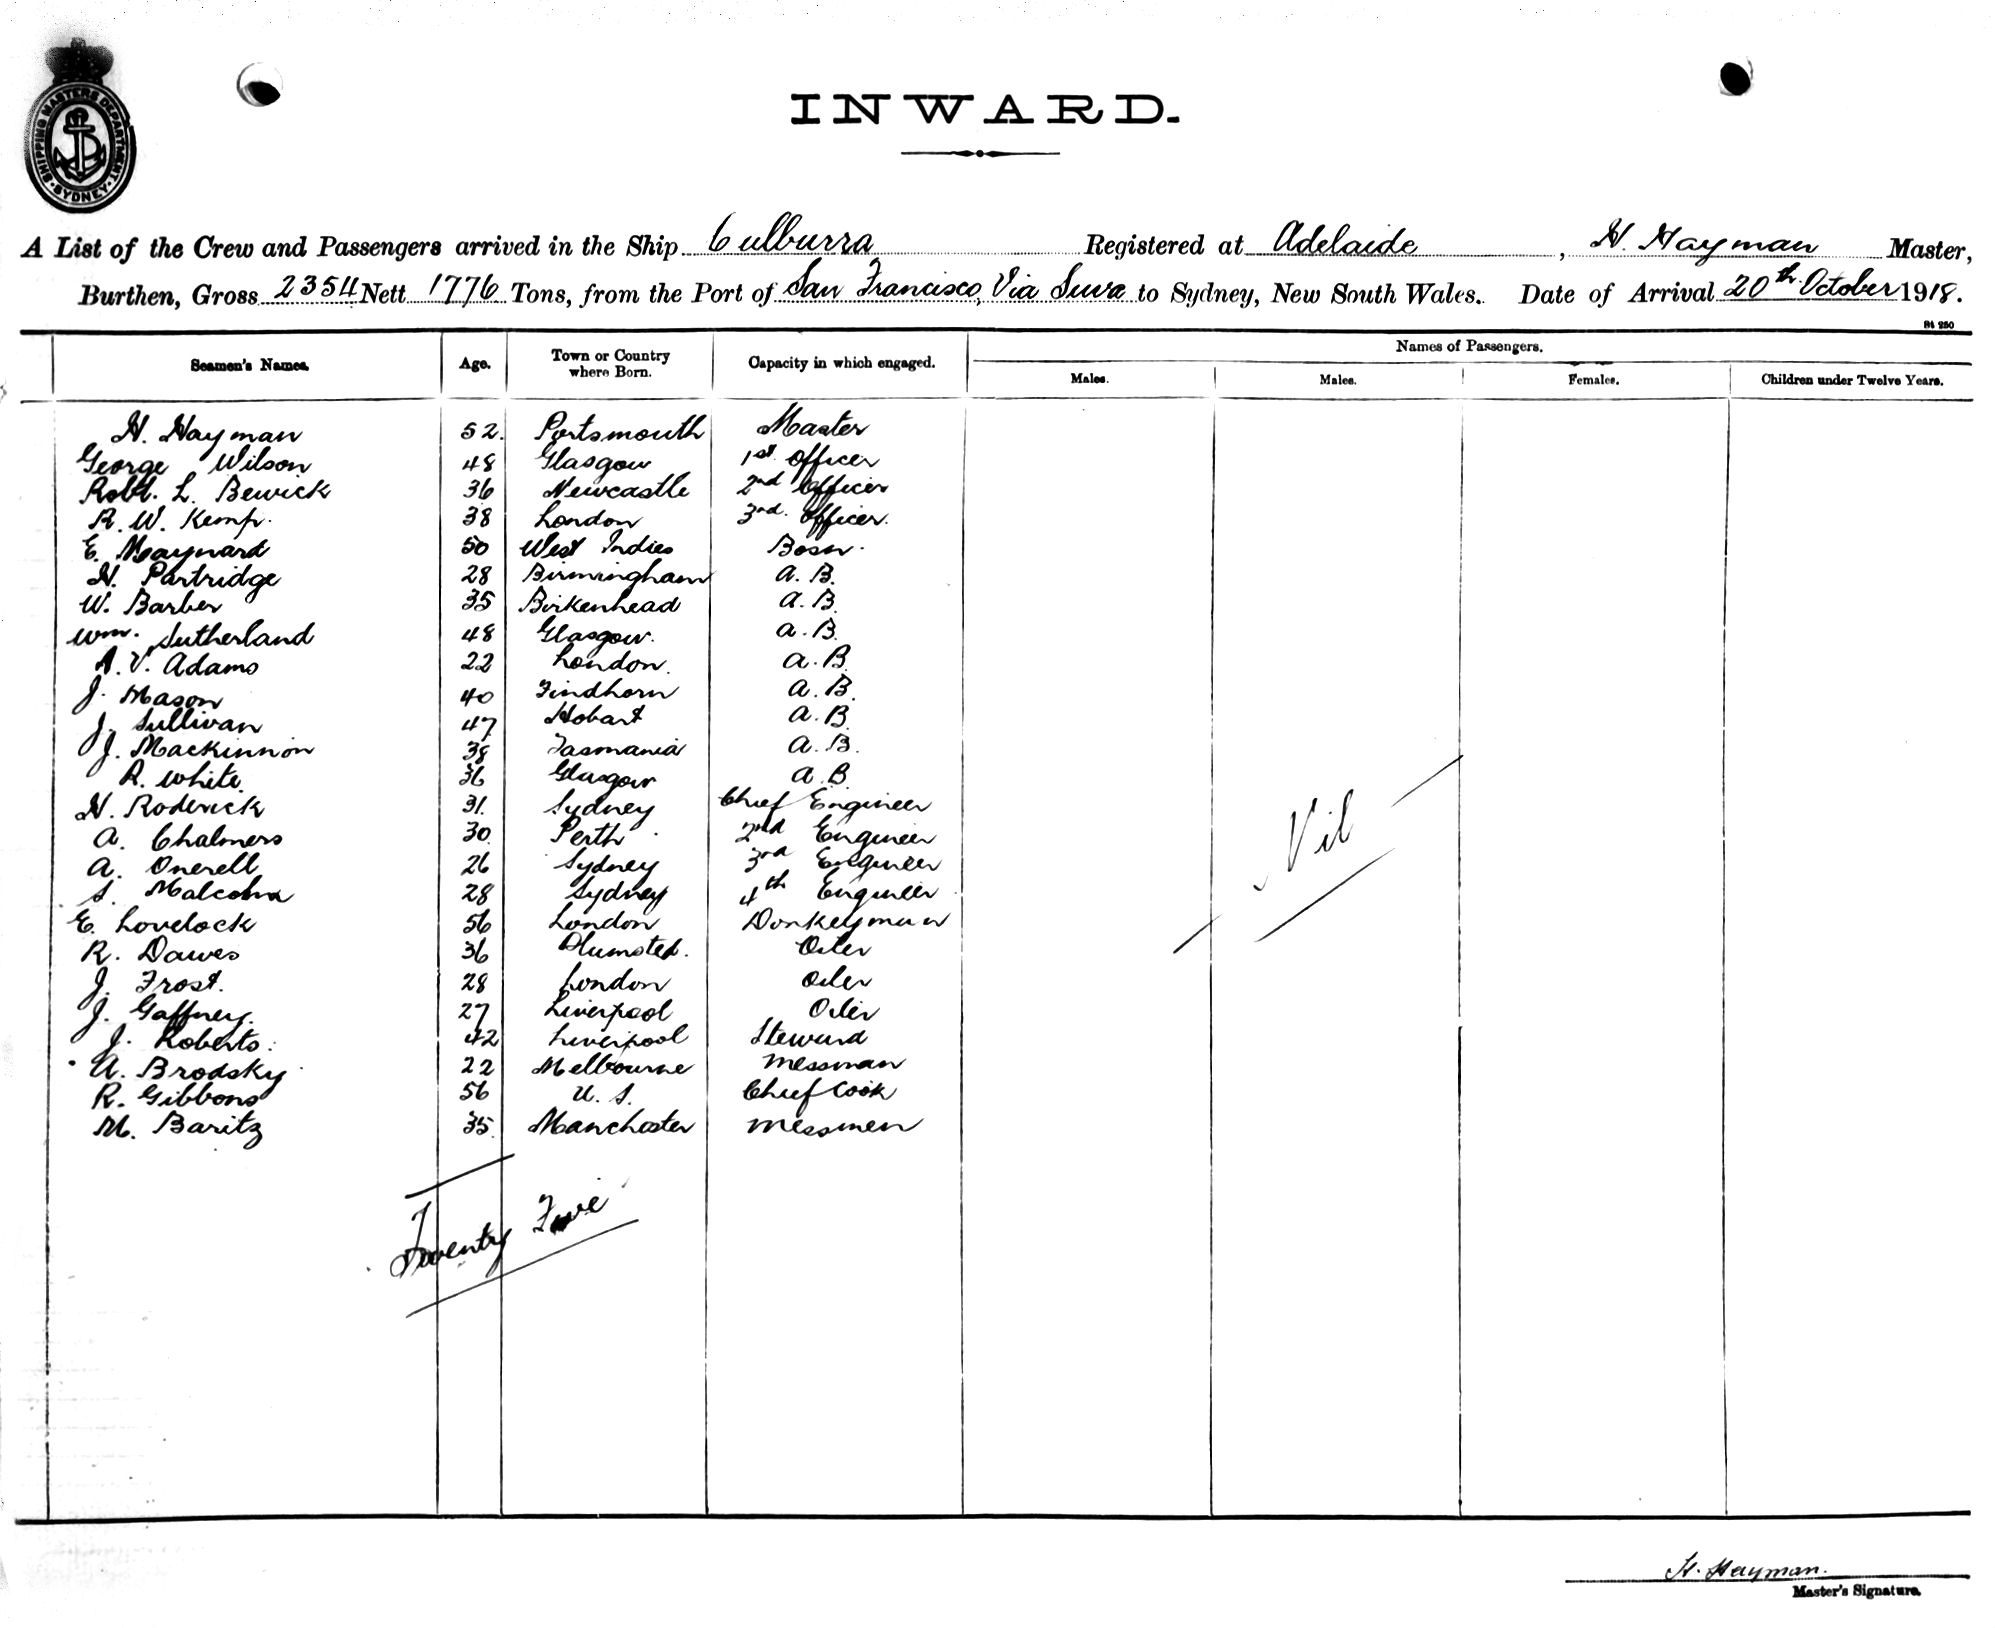 SHIPPING MASTERS DEPARTMENT
SYDNEY
INWARD.
A List of the Crew and Passengers arrived in the Ship Culburra Registered at Adelaide, H. Hayman Master,
Burthen, Gross 2354 Nett 1776 Tons, from the Port of San Francisco, Via Suva to Sydney, New South Wales. Date of Arrival 20th October 1918.
St 250
Seamen's Names. Age. Town or Country where Born. Capacity in which engaged. Names of Passengers.
Males. Males. Females. Children under Twelve Years.
H. Hayman 52. Portsmouth Master
George Wilson 48 Glasgow 1st Officer
Robt. L. Bewick 36 Newcastle 2nd Officer
R. W. Kemp. 38 London 3rd. Officer.
E. Maynard 50 West Indies Bosn.
H. Partridge 28 Birmingham A. B.
W. Barber 35 Birkenhead A. B.
Wm. Sutherland 48 Glasgow. A. B.
A. V. Adams 22 London. A. B.
J. Mason 40 Findhorn A. B.
J. Sullivan 47 Hobart A. B.
J. Mackinnon 38 Tasmania A. B.
R. White. 36 Glasgow A. B
H. Roderick 31. Sydney Chief Engineer
A. Chalmers 30 Perth 2nd Engineer
A. Onerell 26 Sydney 3rd Engineer
S. Malcolm 28 Sydney 4th Engineer
E. Lovelock 56 London Donkeyman
R. Dawes 36 Plumsted. Oiler
J. Frost. 28 London Oiler
J. Gaffney. 27 Liverpool Oiler
J. Roberts. 42 Liverpool Steward
A. Brodsky 22 Melbourne Messman
R. Gibbons 56 U. S. Chief Cook
M. Baritz 35. Manchester Messmen
Nil
Twenty Five
H. Hayman.
Master's Signature.